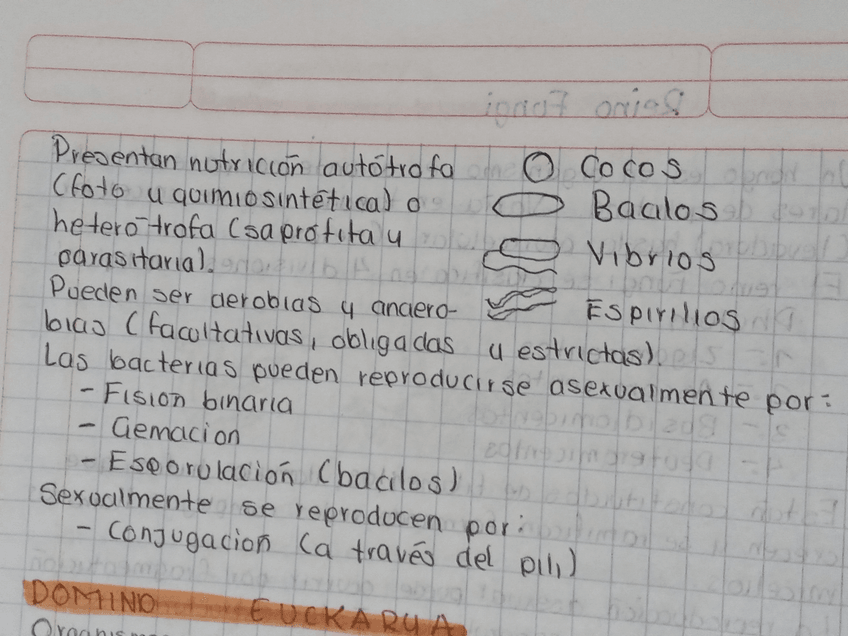 Presentan nutrición autótrofa
(foto y quimiosintética) o
heterótrofa (saprófita y
parasitaria).
Pueden ser aerobias y anaero-
bias (facultativas, obligadas y estrictas).
Las bacterias pueden reproducirse asexualmente por:
- Fision binaria
- Gemacion
- Esporulación (bacilos)
Sexualmente se reproducen por:
- Conjugación (a través del pili)
Cocos
Bacilos
Vibrios
Espirilios
DOMINO EUCKARYA
Organism
Reino Fungi